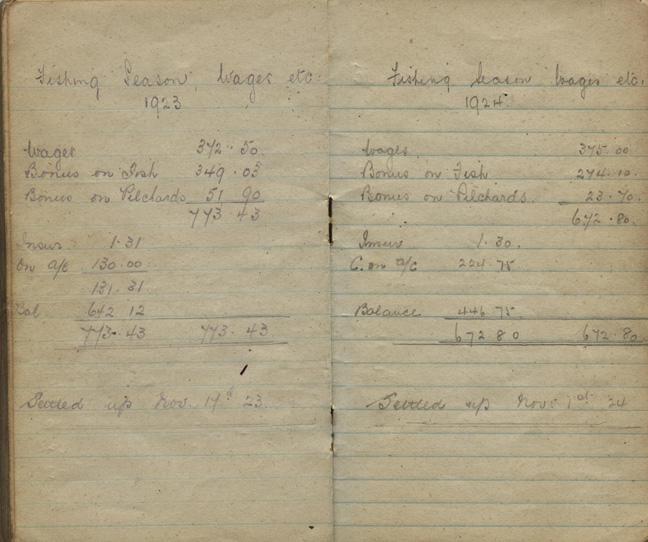 Fishing Season, Wages etc.
1923
Wages 372.50
Bonus on Fish 349.03
Bonus on Pilchards 51 90
773.43
Insur 1.31
On a/c 130.00
131.31
Bal 642 12
773.43 773.43
Settled up Nov. 17th 23.
Fishing Season Wages etc.
1924
Wages 375.00
Bonus on Fish 274.10
Bonus on Pilchards 23.70
672.80
Insur 1.30.
C. on a/c 224.75
Balance 446.75
672 80 672.80
Settled up Nov 1st 24